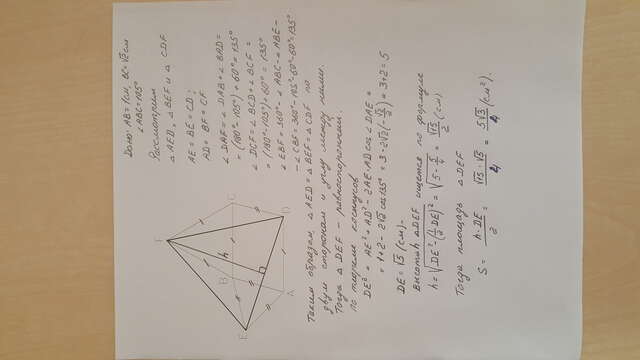 Дано: AB=1см, BC=√2см
∠ABC=105°
Рассмотрим
△AED, △BEF и △CDF
AE = BE = CD;
AD = BF = CF
∠DAF = ∠DAB + ∠BAD =
= (180°-105°) + 60° = 135°
∠DCF = ∠BCD + ∠BCF =
= (180°-105°) + 60° = 135°
∠EBF = 360° - ∠ABC - ∠ABE -
- ∠CBF = 360° - 105° - 60° - 60° = 135°
F
B
h
C
E
A
D
Таким образом, △AED = △BEF = △CDF по
двум сторонам и углу между ними.
Тогда △DEF – равносторонний.
По теореме косинусов
DE² = AE² + AD² - 2AE·AD cos∠DAE =
= 1+2 - 2√2 cos135° = 3 - 2√2(-√2/2) = 3+2 = 5
DE = √5 (см) -
Высота h △DEF ищется по формуле
h = √(DE² - (1/2 DE)²) = √(5 - 5/4) = √15/2 (см)
Тогда площадь △DEF
S = h·DE/2 = √15·√5/4 = 5√3/4 (см²).